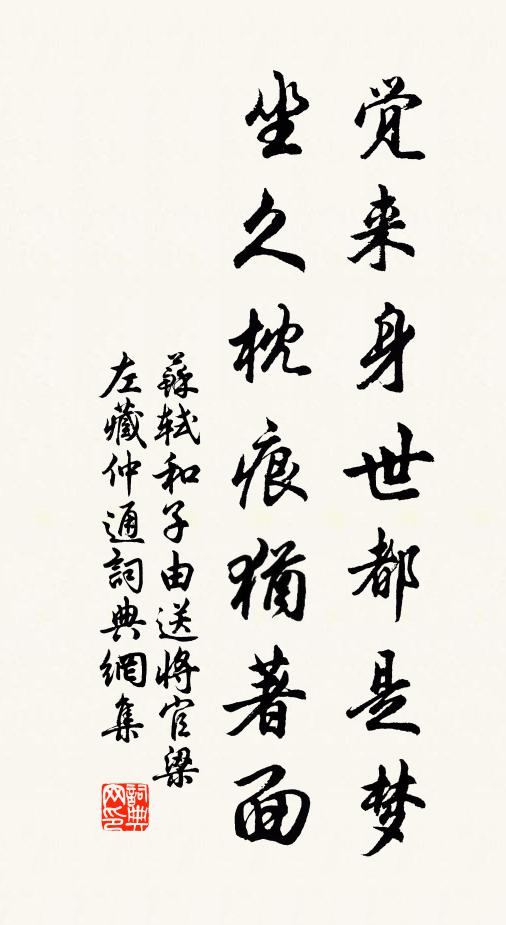 觉来身世都是梦
坐久枕痕犹著面
蘇轼和子由送将官梁
左藏仲通詞典網集
詞典网印